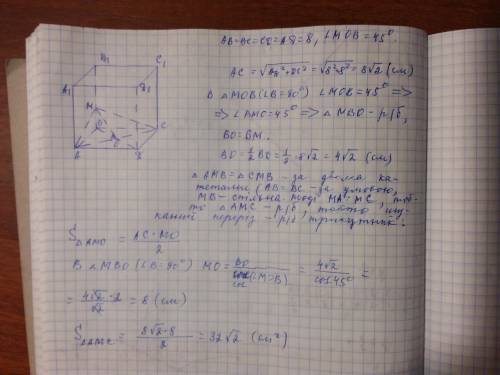 B1 C1
A1 D1
M
B C
O
A D
AB=BC=CD=AD=8, ∠MOB=45°.
AC=√AB²+BC²=√8²+8²=8√2 (см)
△ MOB (∠B=90°) ∠MOB=45° =>
=> ∠BMO=45° => △MBO - р/б,
BO=BM.
BO=1/2 BD=1/2·8√2=4√2 (см)
△AMB=△CMB - за двома ка-
тетами (AB=BC - за умовою,
MB - спільна тоді MA=MC, тоб-
то △AMC - р/б, тобто шу-
каний переріз - р/б трикутник.
S△AMC = AC·MO/2
В △MBO (∠B=90°) MO= BO/cos(∠MOB) = 4√2/cos45° =
= 4√2·2/√2 = 8 (см)
S△AMC = 8√2·8/2 =32√2 (см²)